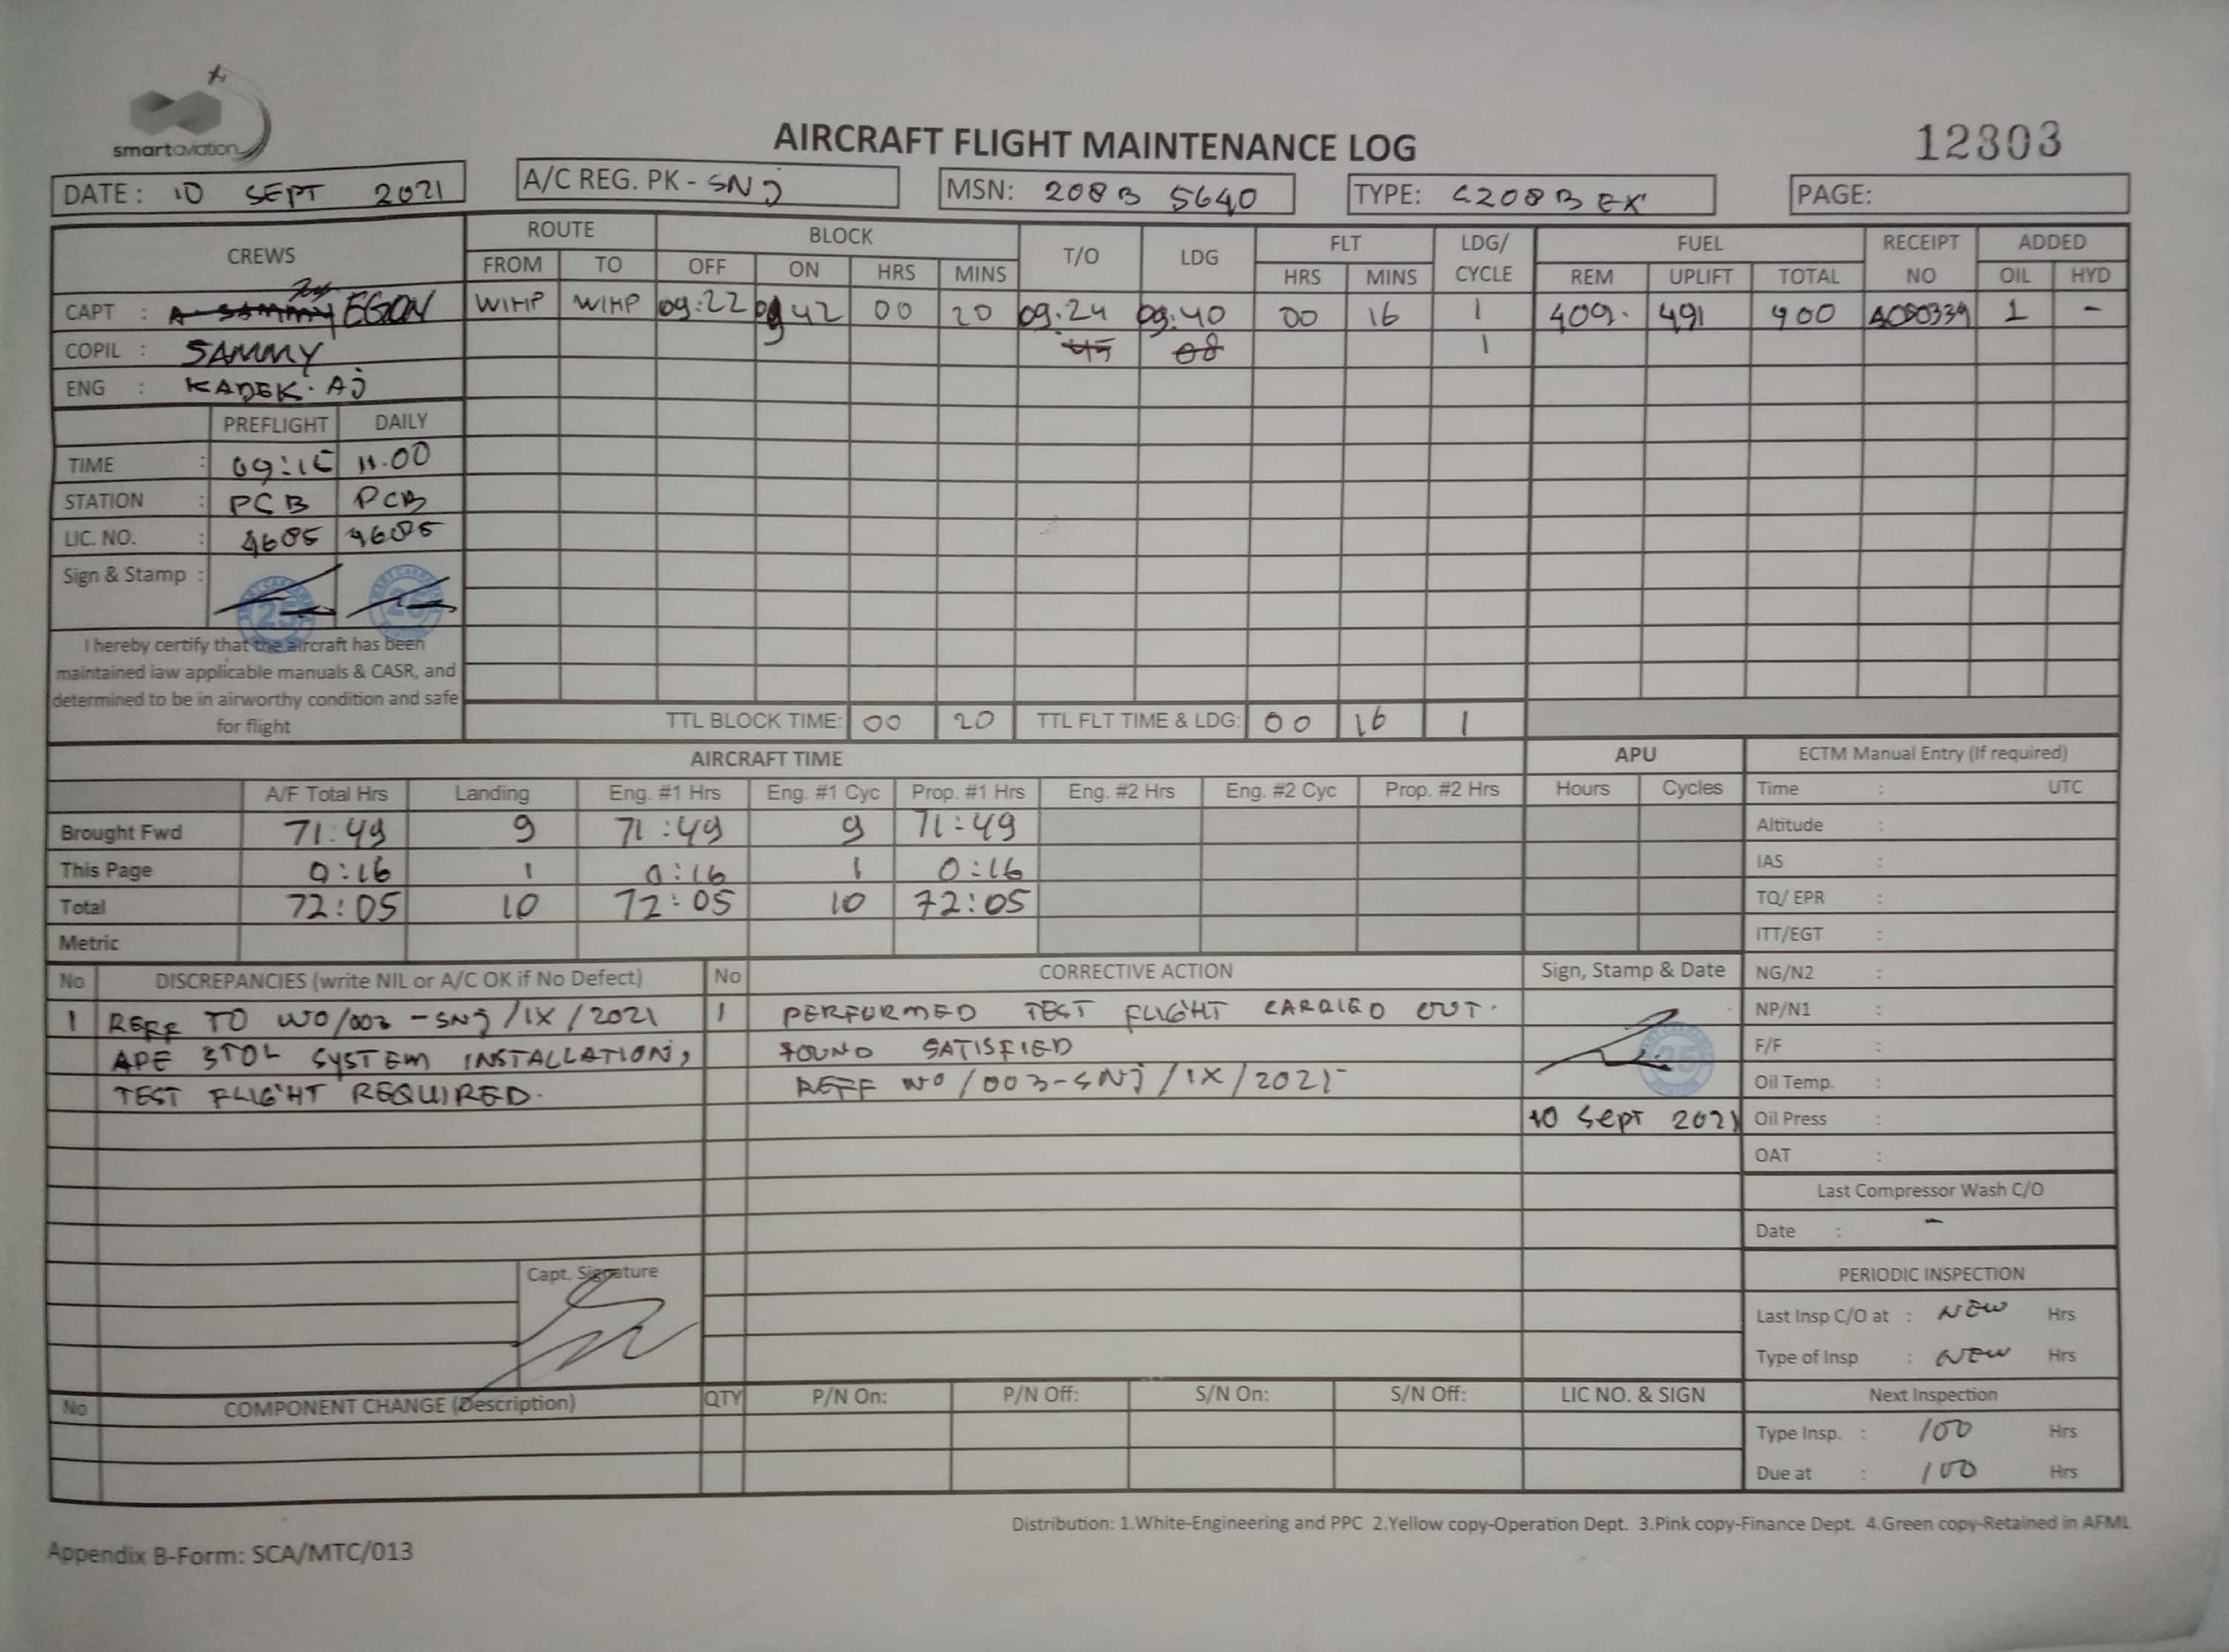 smartaviation
AIRCRAFT FLIGHT MAINTENANCE LOG
12303
DATE: 10 SEPT 2021
A/C REG. PK - SNJ
MSN: 208B 5640
TYPE: C208B EX
PAGE:
CREWS
ROUTE BLOCK T/O LDG FLT LDG/ CYCLE FUEL RECEIPT NO ADDED
FROM TO OFF ON HRS MINS HRS MINS REM UPLIFT TOTAL OIL HYD
CAPT : A SAMMY EGON WIHP WIHP 09:22 09 42 00 20 09.24 09:40 00 16 1 409. 491 900 1 -
COPIL : SAMMY 45 08 1
ENG : KADEK. AJ
PREFLIGHT DAILY
TIME : 09:15 11.00
STATION : PCB PCB
LIC. NO. : 4685 4685
Sign & Stamp :
25 25
I hereby certify that the aircraft has been
maintained iaw applicable manuals & CASR, and
determined to be in airworthy condition and safe
for flight
TTL BLOCK TIME: 00 20 TTL FLT TIME & LDG: 00 16 1
AIRCRAFT TIME APU ECTM Manual Entry (If required)
A/F Total Hrs Landing Eng. #1 Hrs Eng. #1 Cyc Prop. #1 Hrs Eng. #2 Hrs Eng. #2 Cyc Prop. #2 Hrs Hours Cycles Time : UTC
Brought Fwd 71:49 9 71:49 9 71:49 Altitude :
This Page 0:16 1 0:16 1 0:16 IAS :
Total 72:05 10 72:05 10 72:05 TQ/ EPR :
Metric ITT/EGT :
No DISCREPANCIES (write NIL or A/C OK if No Defect) No CORRECTIVE ACTION Sign, Stamp & Date NG/N2 :
1 REFF TO WO/003 - SNJ/IX/2021 1 PERFORMED TEST FLIGHT CARRIED OUT. NP/N1 :
APE STOL SYSTEM INSTALLATION, FOUND SATISFIED 25 F/F :
TEST FLIGHT REQUIRED. REFF WO/003-SNJ/IX/2021 Oil Temp. :
10 Sept 2021 Oil Press :
OAT :
Last Compressor Wash C/O
Date : -
Capt. Signature
PERIODIC INSPECTION
Last Insp C/O at : NEW Hrs
Type of Insp : NEW Hrs
No COMPONENT CHANGE (Description) QTY P/N On: P/N Off: S/N On: S/N Off: LIC NO. & SIGN Next Inspection
Type Insp. : 100 Hrs
Due at : 100 Hrs
Distribution: 1.White-Engineering and PPC 2.Yellow copy-Operation Dept. 3.Pink copy-Finance Dept. 4.Green copy-Retained in AFML
Appendix B-Form: SCA/MTC/013